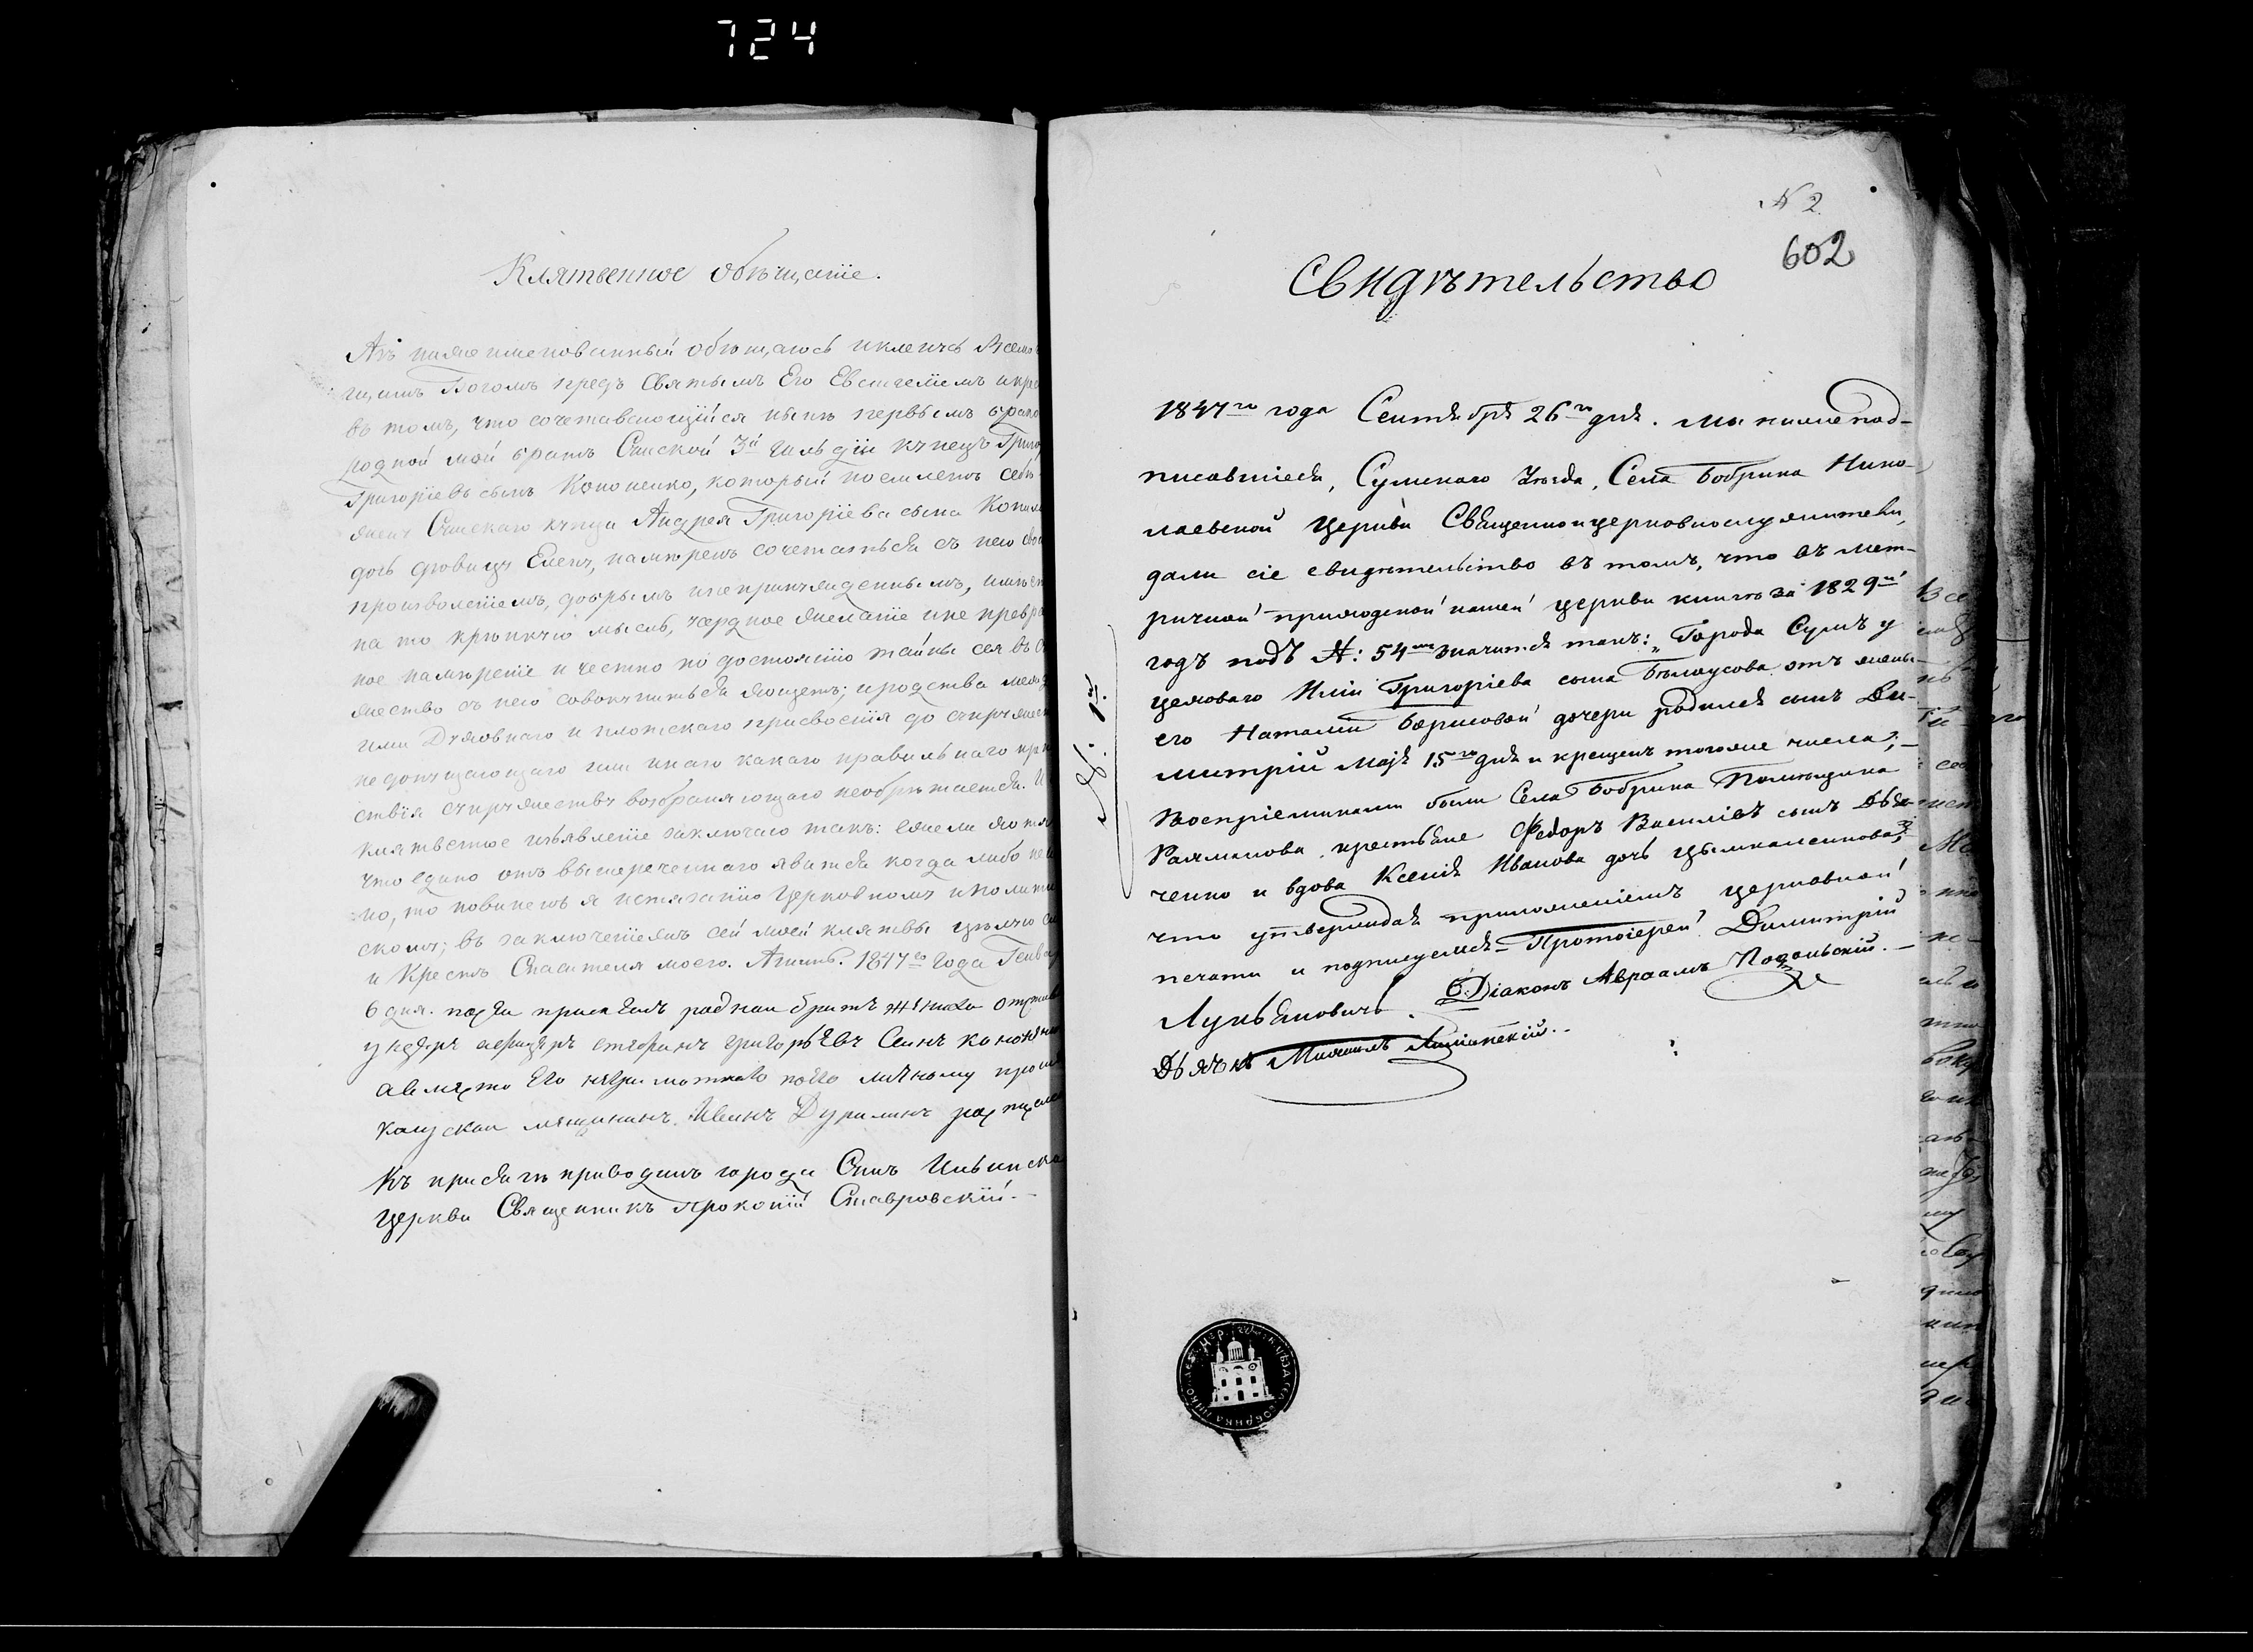 724
Клятвенное обѣщаніе.
Азъ нижеименованный обѣщаюсь и кленусь Всемо
гущимъ Богомъ предъ Святымъ Его Евангеліемъ и кре
въ томъ, что сочетавающійся нынѣ первымъ брако
родной мой братъ Сумской 3й Гильдіи купецъ Григо
Григоріевъ сынъ Кононенко, который поемлетъ себѣ
жену Сумскаго купца Андрея Григоріева сына
дочь дѣвицу Елену, намѣренъ сочетаться съ нею сво
произволеніемъ, добрымъ и непринужденнымъ, имѣе
на то крѣпкую мысль, усердное желаніе и не превра
ное намѣреніе и честно по достоянію тайны сея въ
жество съ нею совокупиться хощетъ; и родства
или Духовнаго и плотскаго присвоенія до супружест
недопущающаго или инаго какаго правильнаго пре
ствія супружеству возбраняющаго необрѣтается. И
клятвенное изъявленіе заключаю такъ: ежели хотя
что едино отъ вышереченнаго явится когда либо не
но, то повиненъ я истязанію Церковному и полити
скому; въ заключеніежъ сей моей клятвы цѣлую сл
и Крестъ Спасителя моего. Аминь. 1847го Года Генвар
6 дня. родной братъ жениха
ундеръ аефицеръ
аместо его неграмотнаго по его личному прозе
мещанинъ Иванъ Дурилинъ росписался
Къ присягѣ приводилъ города Сумъ Ильинско
Церкви Священникъ Прокопій Ставровскій.
№ 2.
602
Свидѣтельство
1847го года Сентября 26го дня. Мы нижепод-
писавшіеся, Сумскаго Уѣзда, Села Бобрика Нико-
лаевской Церкви Священно и церковнослужители,
дали сіе свидѣтельство въ томъ, что въ мет-
ричной приходской нашей церкви книгѣ за 1829й
годъ подъ №: 54мъ значится такъ: „Города Сумъ у
цеховаго Иліи Григоріева сына Бѣлоусова отъ жены
его Наталіи Борисовой дочери родился сынъ Ди-
митрій Маія 15го дня и крещенъ тогоже числа;
Воспріемниками были Села Бобрика Помѣщика
Рахманова крестьяне Федоръ Василіевъ сынъ Дья-
ченко и вдова Ксенія Иванова дочь
что утверждая приложеніемъ церковной
печати и подписуемся Протоіерей Димитрій
Лукьяновичь. Діаконъ Авраамъ Подольскій.
Дьячекъ Михаилъ